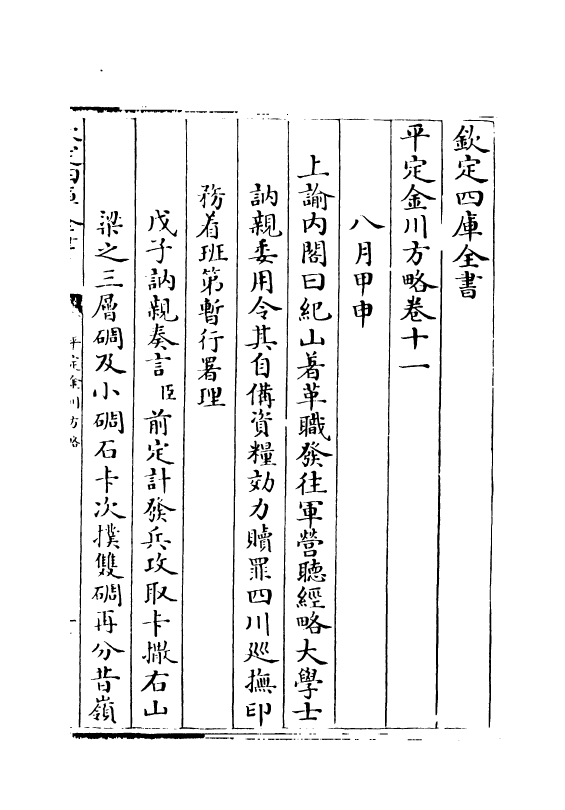 欽定四庫全書
平定金川方略卷十一
八月甲申
上諭内閣曰紀山著革職發往軍營聽經略大學士
訥親委用令其自備資糧効力贖罪四川巡撫印
務着班第暫行署理
戊子訥親奏言臣前定計發兵攻取卡撒右山
梁之三層碉及小碉石卡次撲雙碉再分昔嶺
平定金川方略